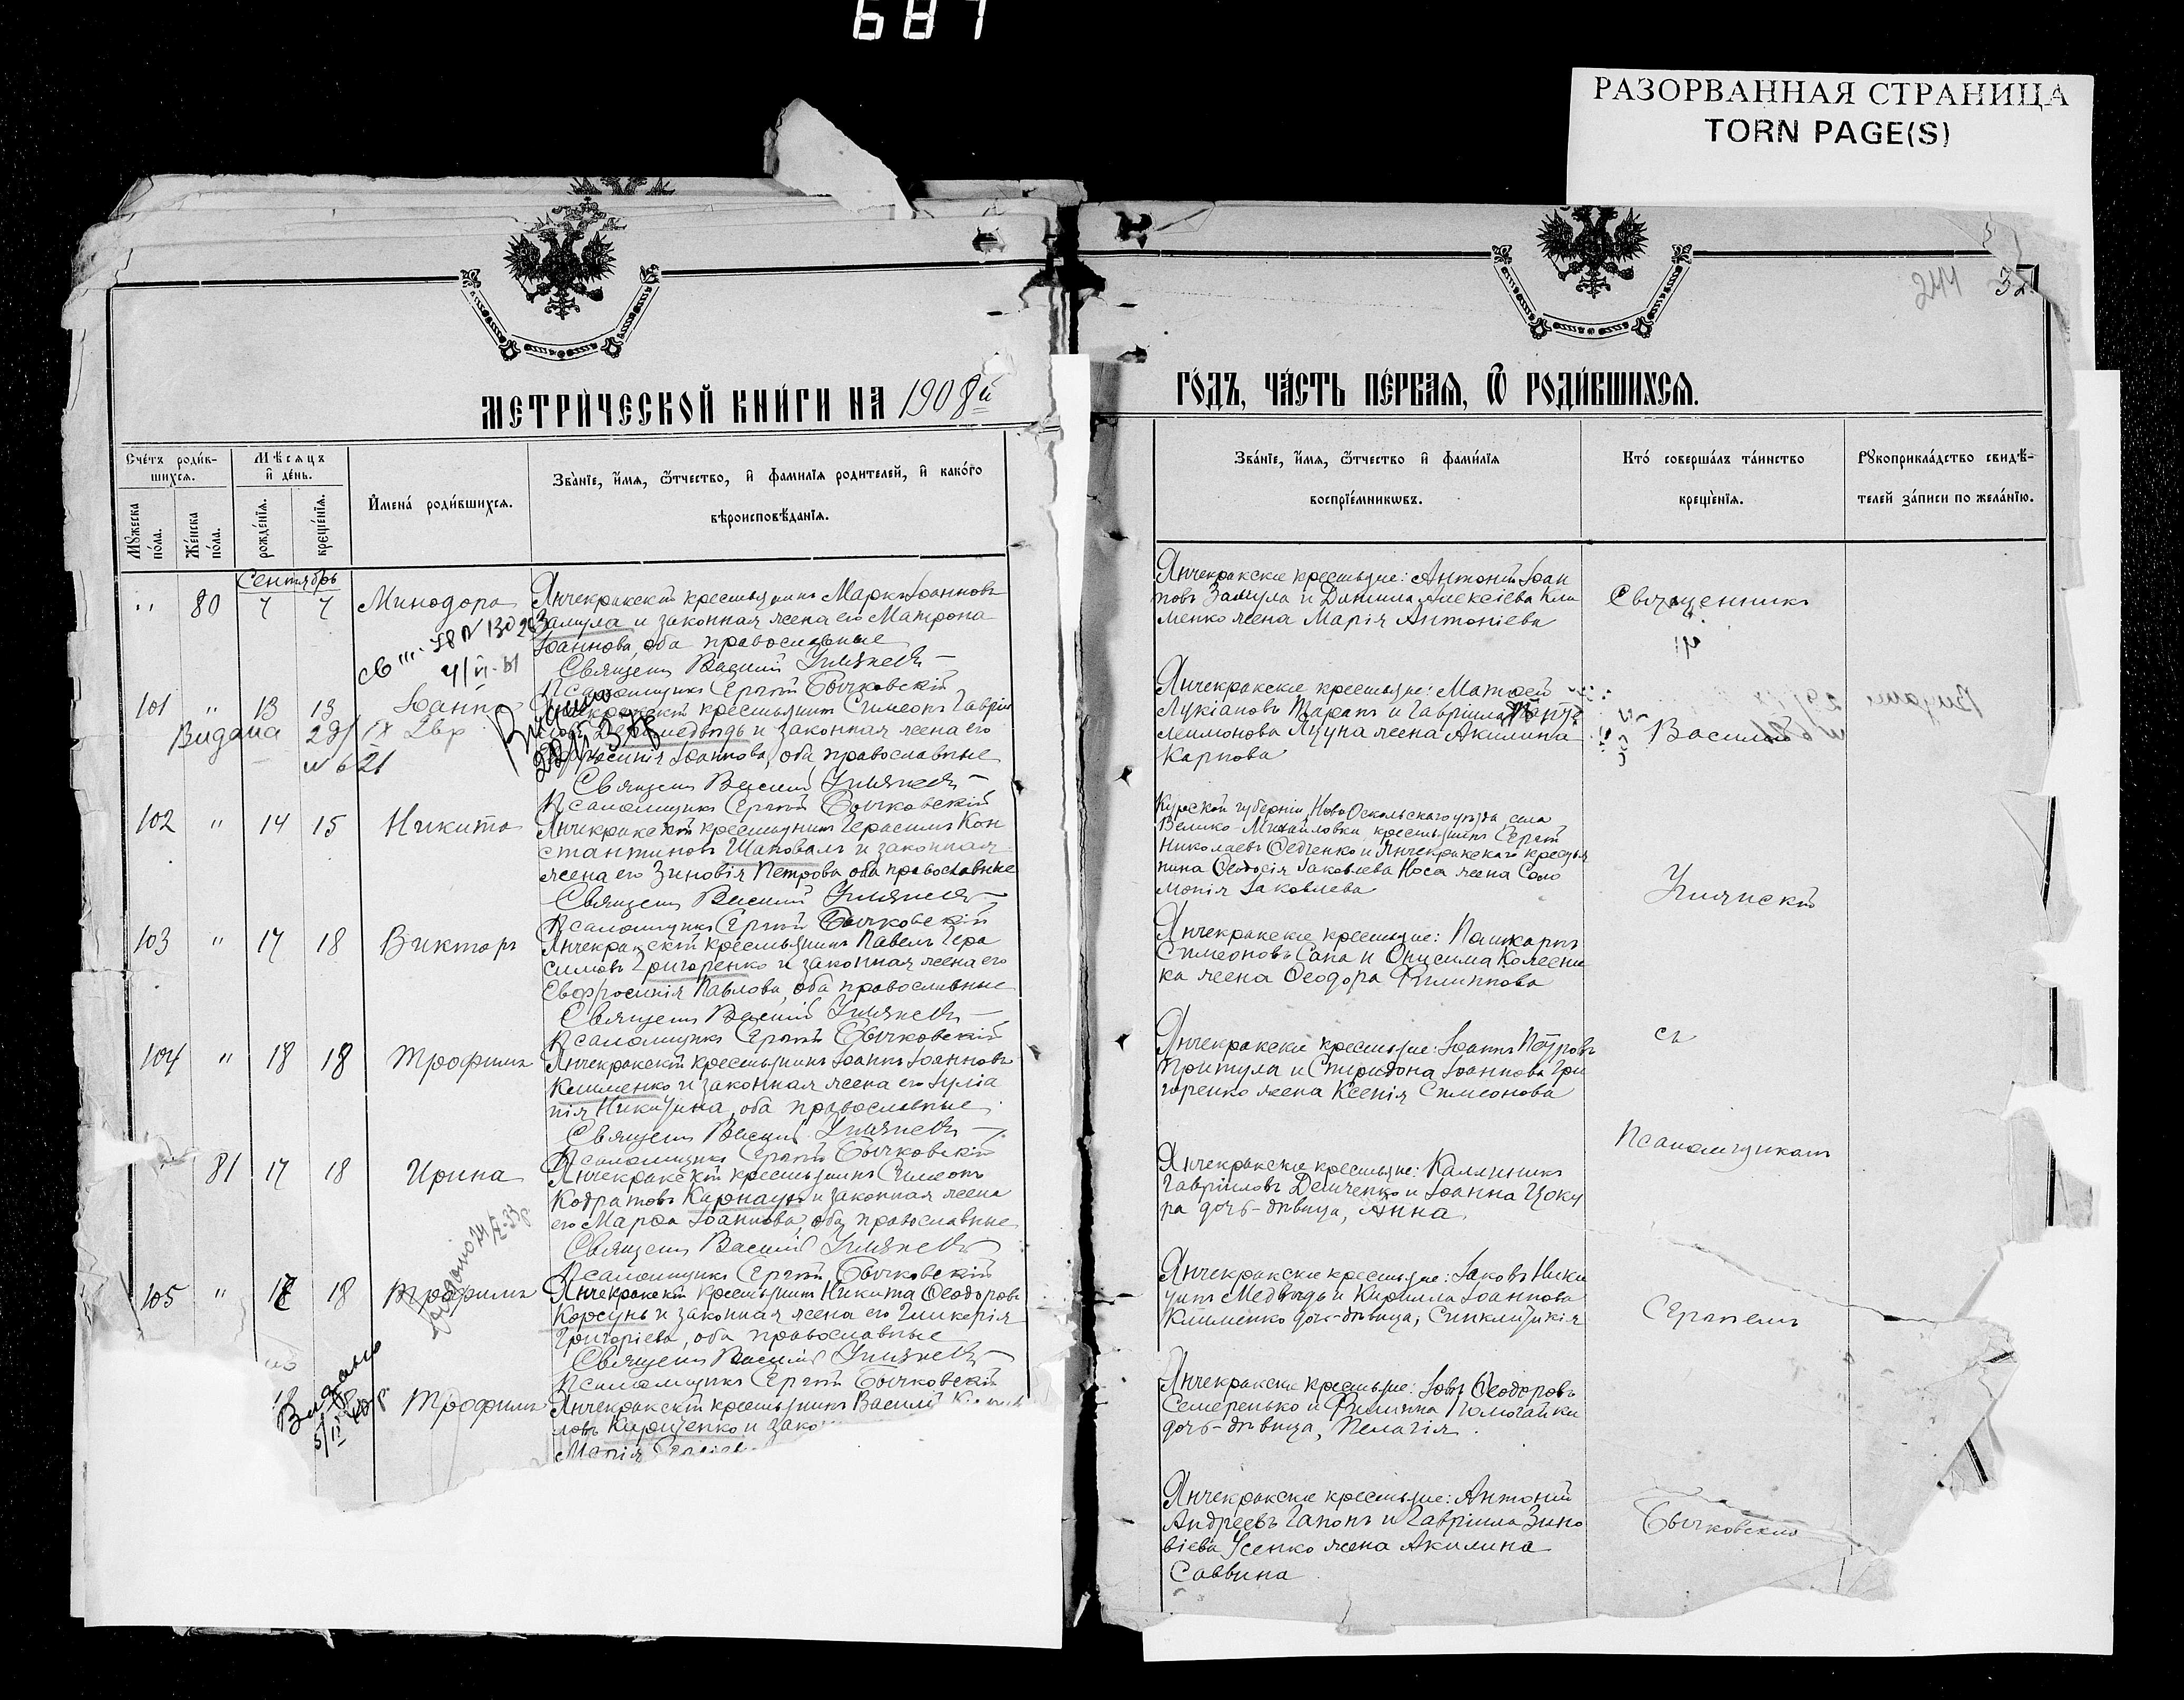 687
РАЗОРВАННАЯ СТРАНИЦА
TORN PAGE(S)
244
32
МЕТРИ́ЧЕСКОЙ КНИ́ГИ НА 1908 й
ГО́ДЪ, ЧА́СТЬ ПЕ́РВАѦ, Ѽ РОДИ́ВШИХСѦ.
Сче́тъ роди́вшихсѧ.
Мѣсѧцъ и҆ де́нь.
Мꙋжеска по́ла.
Же́нска по́ла.
рожде́нїѧ.
креще́нїѧ.
И҆мена̀ роди́вшихсѧ.
Зва́нїе, и҆́мѧ, ѻ҆́тчество, и҆ фами́лїѧ родителей, и҆ како́гѡ
вѣроисповѣ́данїѧ.
Зва́нїе, и҆́мѧ, ѻ҆́тчество и҆ фами́лїѧ
воспрїе́мникѡвъ.
Кто̀ соверша́лъ та́инство
креще́нїѧ.
Рꙋкоприкла́дство свидѣ́-
телей за́писи по жела́нїю.
Сентябрь
" 80 4 4 Минодора
Янчекракскій крестьянинъ Маркъ Іоанновъ
Замула и законная жена его Матрона
Іоаннова, оба православные
Священ Василій
Псаломщикъ Сергій Бычковскій
Янчекракскіе крестьяне: Антоній Іоан
новъ Замула и Даниила Алексіева Кли
менко жена Марія Антоніева
101 " 13 13 Іоаннъ
Видана 29/IX
№ 621
Янчекракскій крестьянинъ Симеонъ Гавріи
и законная жена его
Іоаннова, оба православные
Священ Василій
Псаломщикъ Сергій Бычковскій
Янчекракскіе крестьяне:
Лукіановъ Таранъ и Гавріила
жена Акилина
Карпова
102 " 14 15 Никита
Янчекракскій крестьянинъ Герасимъ Кон
стантиновъ Шаповалъ и законная
жена его Зиновія Петрова оба православные
Священ Василій
Псаломщикъ Сергій Бычковскій
Курской губерніи, Ново Оскольскаго уѣзда, села
Велико-Михайловки, крестьянинъ Сергій
Николаевъ Федченко и Янчекракскаго крестья
нина Ѳеодосія Іаковлева Носа жена Соло
монія Іаковлева
103 " 17 18 Викторъ
Янчекракскій крестьянинъ Павелъ Гера
симовъ Григоренко и законная жена его
Евфросинія Павлова, оба православные
Священ Василій
Псаломщикъ Сергій Бычковскій
Янчекракскіе крестьяне:
Симеоновъ Сапа и Онисима Колесни
ка жена Ѳеодора Филиппова
104 " 18 18 Трофимъ
Янчекракскій крестьянинъ Іоаннъ Іоанновъ
Клименко и законная жена его Іуліа
нія Никитина, оба православные
Священ Василій
Псаломщикъ Сергій Бычковскій
Янчекракскіе крестьяне: Іоаннъ Петровъ
Притула и Спиридона Іоаннова Гри
горенко жена Ксенія Симеонова
81 17 18 Ирина
Янчекракскій крестьянинъ Симеонъ
Кодратовъ Карнаухъ и законная жена
его Марѳа Іоаннова, оба православные
Священ Василій
Псаломщикъ Сергій Бычковскій
Янчекракскіе крестьяне: Каллиникъ
Гавріиловъ Демченко и Іоанна Цоку
ра дочь-дѣвица, Анна
105 " 18 Трофимъ
Янчекракскій крестьянинъ Никита Ѳеодоровъ
Корсунь и законная жена его Гликерія
Григоріева, оба православные
Священ Василій
Псаломщикъ Сергій Бычковскій
Янчекракскіе крестьяне: Іаковъ Ники
тинъ Медвѣдь и Кирилла Іоаннова
Клименко дочь-дѣвица, Синклитикія
Трофимъ
Янчекракскій крестьянинъ Василій
ловъ и зако
Марія
Янчекракскіе крестьяне: Іовъ Ѳеодоровъ
Семеренько и Филиппа Помогайки
дочь-дѣвица, Пелагія
Янчекракскіе крестьяне: Антоній
Андреевъ Гапонъ и Гавріила Зино
віева Усенко жена Акилина
Саввина
Священникъ
Василій
съ
Псаломщикомъ
Сергіемъ
Бычковскимъ